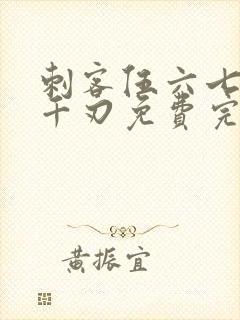 刺客伍六七
千刃免费完
黄振宜